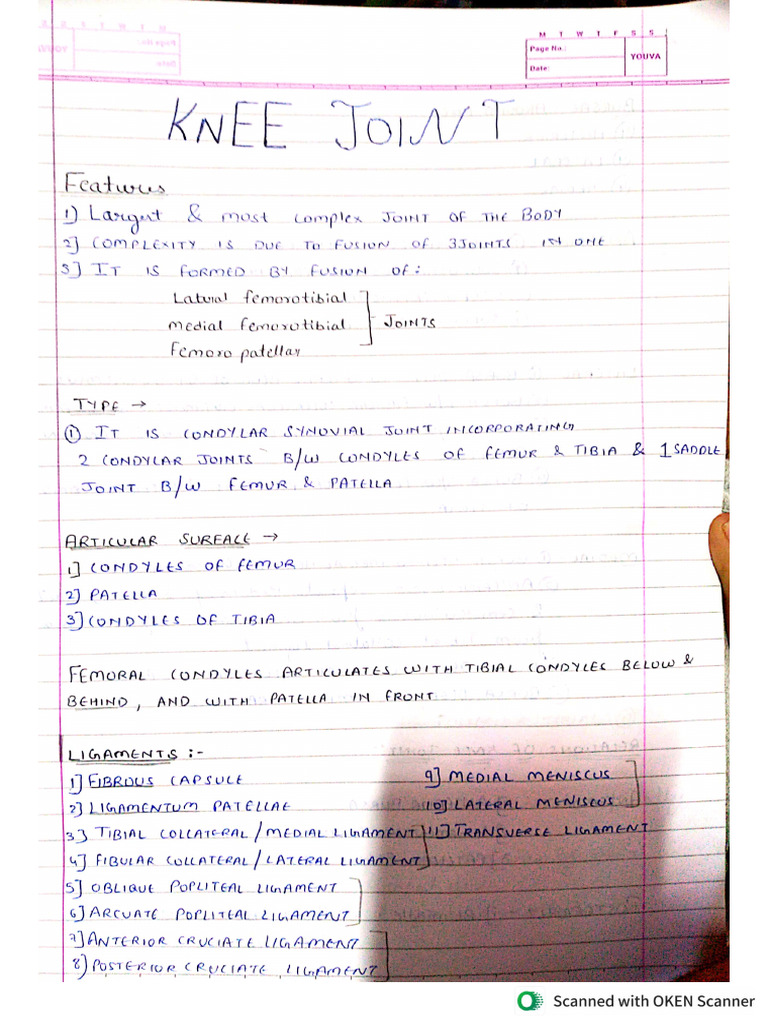 M T W T F S S
Page No.:
Date:
YOUVA
KNEE JOINT
Features
1) Largest & most complex JOINT OF THE BODY
2] COMPLEXITY IS DUE TO FUSION OF 3 JOINTS IN ONE
3] IT IS FORMED BY FUSION OF:
Lateral femorotibial
medial femorotibial
JOINTS
femoro patellar
TYPE →
① IT IS CONDYLAR SYNOVIAL JOINT INCORPORATING
2 CONDYLAR JOINTS B/W CONDYLES OF FEMUR & TIBIA & 1 SADDLE
JOINT B/W FEMUR & PATELLA
ARTICULAR SURFACE →
1] CONDYLES OF FEMUR
2] PATELLA
3] CONDYLES OF TIBIA
FEMORAL CONDYLES ARTICULATES WITH TIBIAL CONDYLES BELOW &
BEHIND, AND WITH PATELLA IN FRONT
LIGAMENTS :-
1] FIBROUS CAPSULE
2] LIGAMENTUM PATELLAE
3] TIBIAL COLLATERAL / MEDIAL LIGAMENT
4] FIBULAR COLLATERAL / LATERAL LIGAMENT
5] OBLIQUE POPLITEAL LIGAMENT
6] ARCUATE POPLITEAL LIGAMENT
7] ANTERIOR CRUCIATE LIGAMENT
8] POSTERIOR CRUCIATE LIGAMENT
9] MEDIAL MENISCUS
10] LATERAL MENISCUS
11] TRANSVERSE LIGAMENT
Scanned with OKEN Scanner